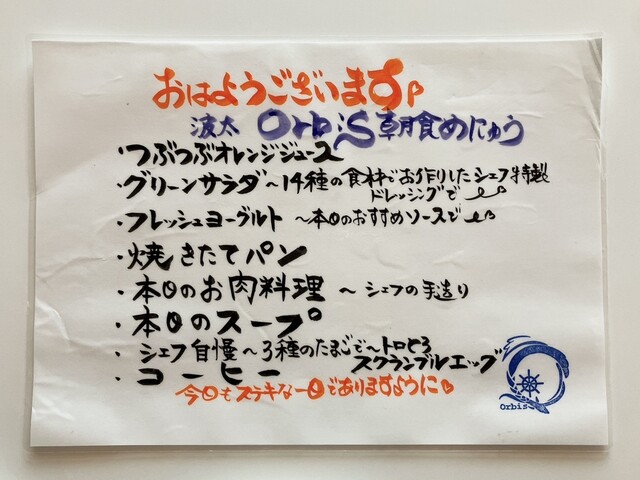 おはようございます♪
波太 Orbis朝食めにゅう
・つぶつぶオレンジジュース
・グリーンサラダ~14種の食材でお作りしたシェフ特製
ドレッシングで
・フレッシュヨーグルト ~本日のおすすめソースで
・焼きたてパン
・本日のお肉料理 ~シェフの手造り
・本日のスープ
・シェフ自慢~3種のたまごで~トロとろ
スクランブルエッグ
・コーヒー
今日もステキな一日でありますように♪
Orbis